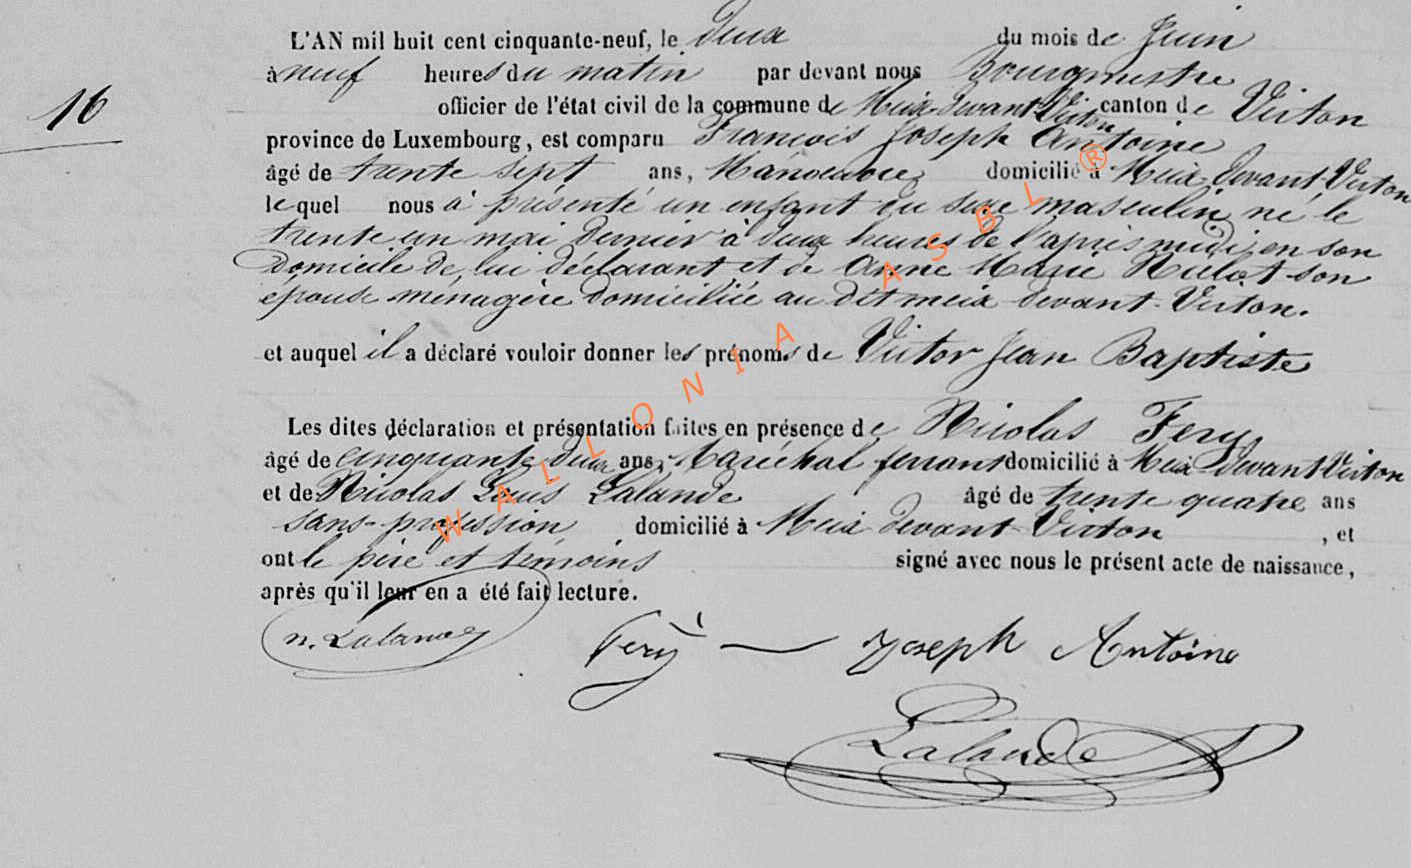 L'AN mil huit cent cinquante-neuf, le deux du mois de Juin
à neuf heures du matin par devant nous Bourgmestre
16
officier de l'état civil de la commune de Meix-devant-Virton canton de Virton
province de Luxembourg, est comparu François Joseph Antoine
âgé de trente sept ans, Manoeuvre, domicilié à Meix devant Virton
lequel nous à présenté un enfant du sexe masculin, né le
trente un mai dernier à deux heures de l'après midi, en son
domicile de lui déclarant et de Anne Marie Hulot son
épouse ménagère domiciliée au dit meix-devant-Virton.
et auquel il a déclaré vouloir donner les prénoms de Victor Jean Baptiste
Les dites déclaration et présentation faites en présence de Nicolas Fery
âgé de cinquante deux ans, Maréchal ferrant domicilié à Meix devant Virton
et de Nicolas Louis Lalande âgé de trente quatre ans
sans-profession domicilié à Meix devant Virton, et
ont le père et témoins signé avec nous le présent acte de naissance,
après qu'il leur en a été fait lecture.
n. Lalande Fery Joseph Antoine
Lalande
WALLONIA ASBL ®